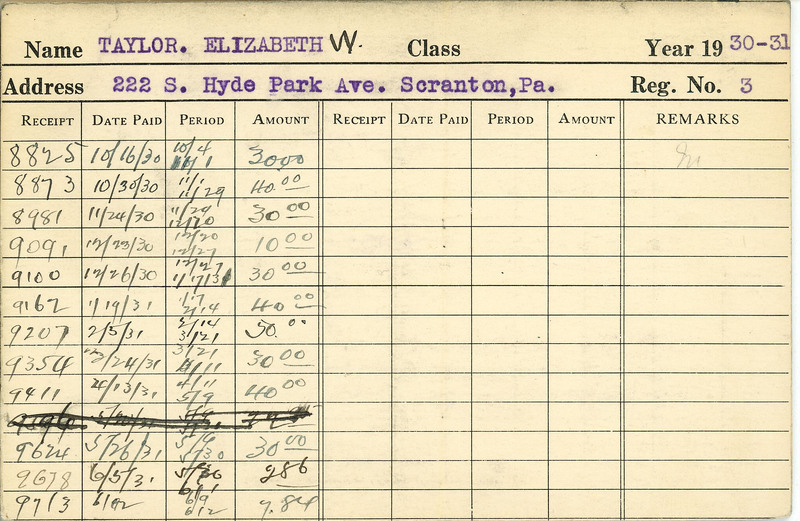 Name TAYLOR. ELIZABETH W. Class Year 19 30-31
Address 222 S. Hyde Park Ave. Scranton,Pa. Reg. No. 3
RECEIPT DATE PAID PERIOD AMOUNT RECEIPT DATE PAID PERIOD AMOUNT REMARKS
8825 10/16/30 10/4 11/1 30.00
8873 10/30/30 11/1 11/29 40.00
8981 11/24/30 11/29 12/20 30.00
9091 12/23/30 12/20 12/27 10.00
9100 12/26/30 12/27 1/17/31 30.00
9167 1/19/31 1/17 2/14 40.00
9207 2/5/31 2/14 3/21 50.00
9354 2/24/31 3/21 4/11 30.00
9411 4/13/31 4/11 5/9 40.00
9624 5/26/31 5/9 5/30 30.00
9678 6/5/31 5/30 286
9713 6/12 6/9 6/12 7.84